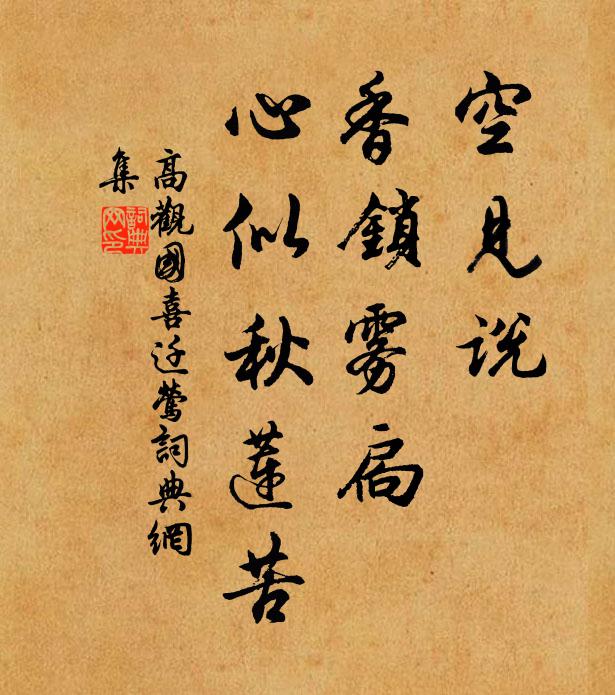 空見說
香鎖霧扃
心似秋蓮苦
高觀國喜迁鶯詞典網
集
詞典
网印